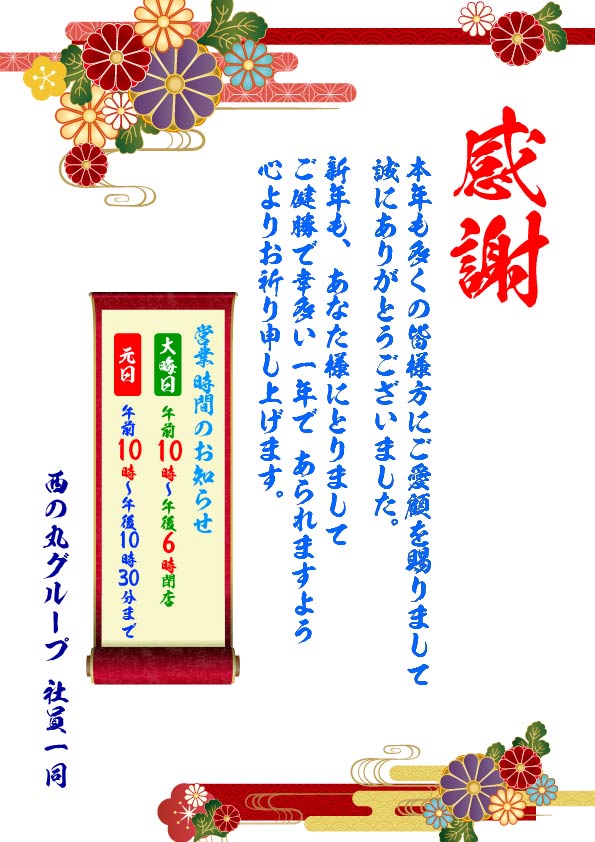 感謝
本年も多くの皆様方にご愛顧を賜りまして
誠にありがとうございました。
新年も、あなた様にとりまして
ご健勝で幸多い一年で あられますよう
心よりお祈り申し上げます。
営業時間のお知らせ
大晦日 午前10時～午後6時閉店
元日 午前10時～午後10時30分まで
西の丸グループ 社員一同